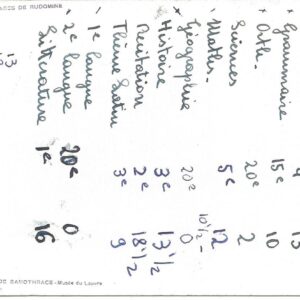 Grammaire
Orth. 15e 10
Sciences 20e 2
Maths. 5e 12
Géographie 20e 10 1/2 - 0
Histoire 3e 13 1/2
Récitation 2e 18 1/2
Thème Latin 3e 9
1e langue
2e langue 20e 0
Littérature 1e 16
13
DE RUDOMINE
DE SAMOTHRACE - Musée du Louvre